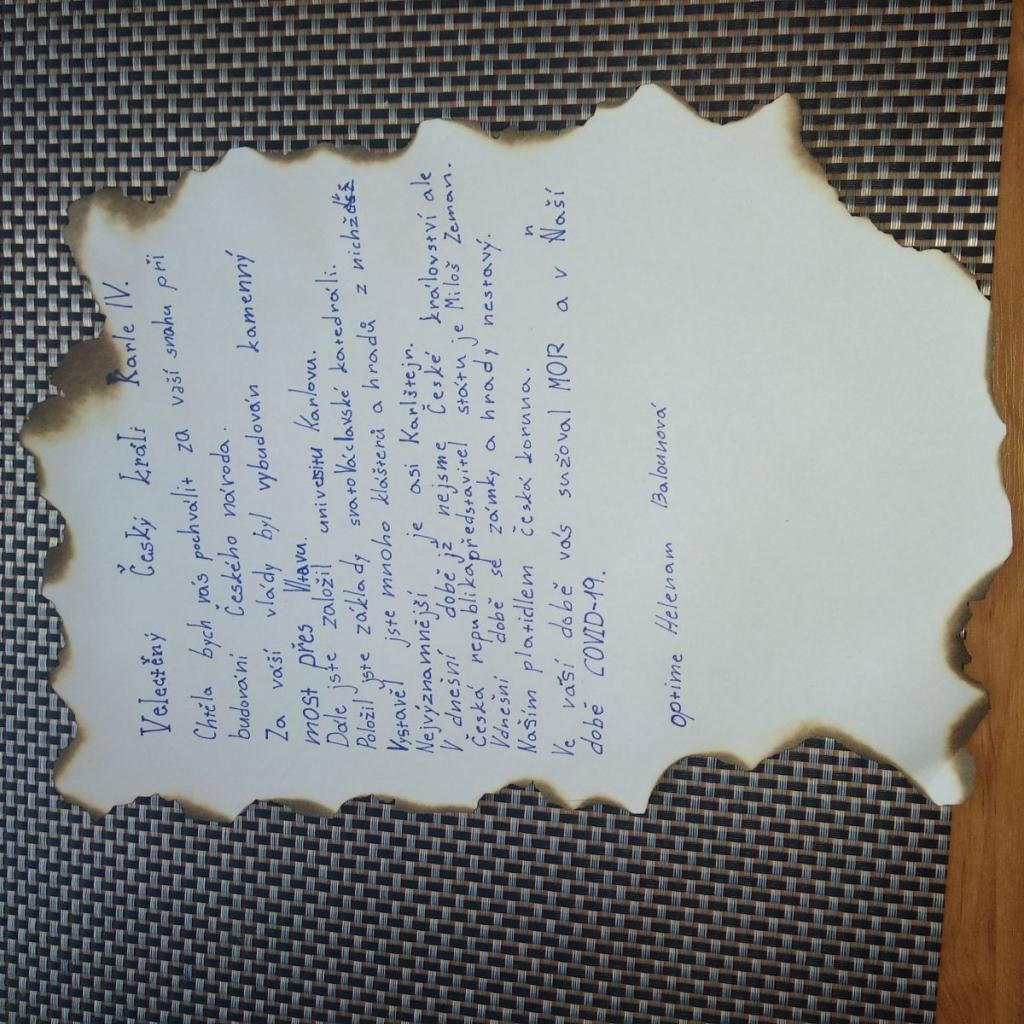 Velectěný Český králi Karle IV.
Chtěla bych vás pochválit za vaší snahu při
budování Českého národa.
Za vaší vlády byl vybudován kamenný
most přes Vltavu.
Dále jste založil universitu Karlovu.
Položil jste základy svatoVáclavské katedráli.
Vystavěl jste mnoho klášterů a hradů z nichž
Nejvýznamnější je asi Karlštejn.
V dnešní době jž nejsme České království ale
Česká republika představitel státu je Miloš Zeman.
Vdnešní době se zámky a hrady nestavý.
Našim platidlem Česká koruna.
Ve vaší době vás sužoval MOR a v naší
době COVID-19.
optime Helenam Balounová